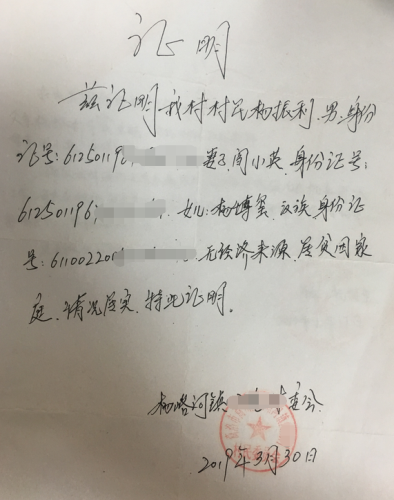 证明
兹证明我村村民杨振利、男、身份
证号:6125011960 妻子闫小英、身份证号:
612501196 女儿:杨博 汉族身份证
号:61100220 无经济来源、居贫困家
庭、情况属实、特此证明。
杨峪河镇 委会
2019年3月30日